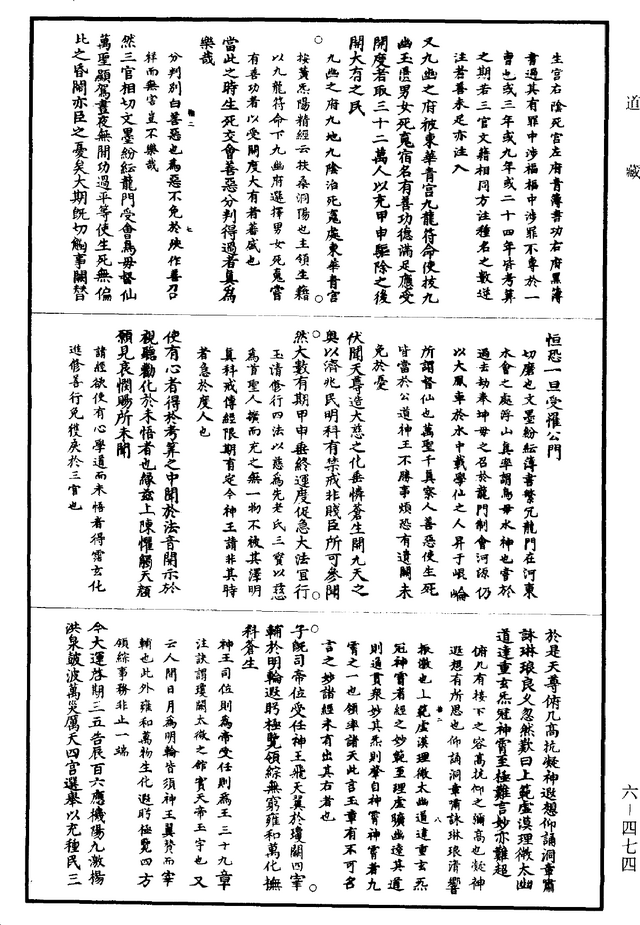 道藏
生宮右陰死宮左府青簿書功右府黑簿
書過其有罪中涉福福中涉罪不專於一
曹也或三年或九年或二十四年皆考算
之期若三官文籍相同方注種名之數送
注若善未足亦注入
又九幽之府被東華青宮九龍符命使拔九
幽玉匱男女死䰟宿名有善功德滿足應受
開度者取三十二萬人以充甲申驅除之後
開大有之民
九幽之府九地九陰治死䰟處東華青宮
按黃炁陽精經云扶桑洞陽也主領生籍
以九龍符命下九幽府選擇男女死䰟當
有善功者以受開度大有者善咸也
當此之時生死交會善惡分判得過者真為
樂哉
分判別白善惡也為惡不免於殃作善召
祥而無害豈不樂哉
然三官相切文墨紛紜龍門受會鳥母督仙
萬聖顯駕晝夜無閒功過平等使生死無偏
比之昏闇亦臣之憂矣大期既切觸事闕替
恒恐一旦受罹公門
切磨也文墨紛紜簿書繁冗龍門在河東
水會之處浮山真率謂鳥母水神也嘗於
過去劫奉坤母之召於龍門制會河源仍
以大風車於水中載學仙之人昇于崐崘
所謂督仙也萬聖千真察人善惡使生死
皆當於公道神王不勝事煩恐有遺闕未
免於憂
伏聞天尊造大慈之化垂憐蒼生開九天之
奥以濟兆民明科有禁戒非賤臣所可參聞
然大數有期甲申垂終運度促急大法宜行
玉清修行四法以慈為先老氏三寶以慈
為首聖人擴而充之無一物不被其澤明
真科戒傳經限期有定今神王請非其時
者急於度人也
使有心者得於考算之中聞於法音開示於
視聽勸化於未悟者也緣玆上陳懼觸天顔
願見哀憫賜所未聞
請經欲使有心學道而未悟者得霑玄化
進修善行免獲戾於三官也
於是天尊俯几高抗凝神遐想仰誦洞章肅
詠琳琅良乂忽然歎曰上範虛漠理微太幽
道達重玄炁冠神霄至極難言妙亦難超
俯几有接下之容高抗仰之彌高也凝神
遐想有所思也仰誦洞章嘯詠琳琅清響
振激也上範虛漠理微太幽道達重玄炁
冠神霄者經之妙範至理虛曠幽遠其道
則通貫衆妙其炁則聲自神霄神霄者九
霄之一也領率諸天此言玉章有不可名
言之妙諸經未有出其右者也
子既司帝位受任神王飛天翼於瓊闕四宰
輔於明輪遐眄極覽領綜無窮雍和萬化撫
料蒼生
神王司位則為帝受任則為王三十九章
注訣謂瓊闕太微之館賓天帝玉字也又
云人間日月為明輪皆須神王翼贊而宰
輔也此外雍和萬物生化遐眄極覽四方
領綜事務非止一端
今大運啓期三五告辰百六應機陽九激揚
洪泉皷波萬災厲天四宮選舉以充種民三
六—四七四